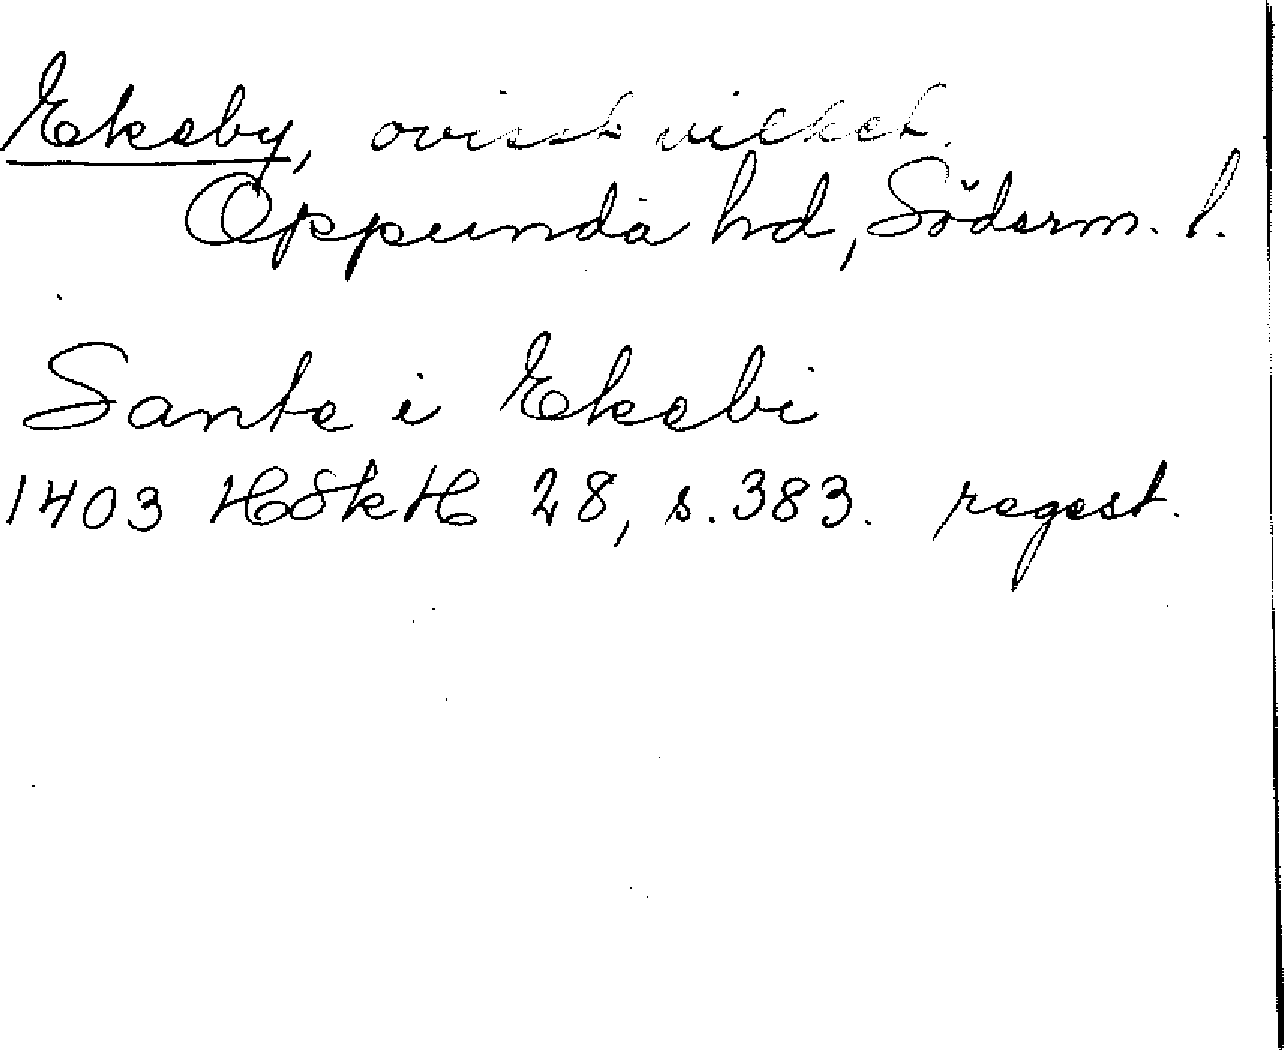 Ekeby, ovisst vilket.
Oppunda hd, Söderm. l.
Sante i Ekebi
1403 HSkH 28, s. 383. regest.